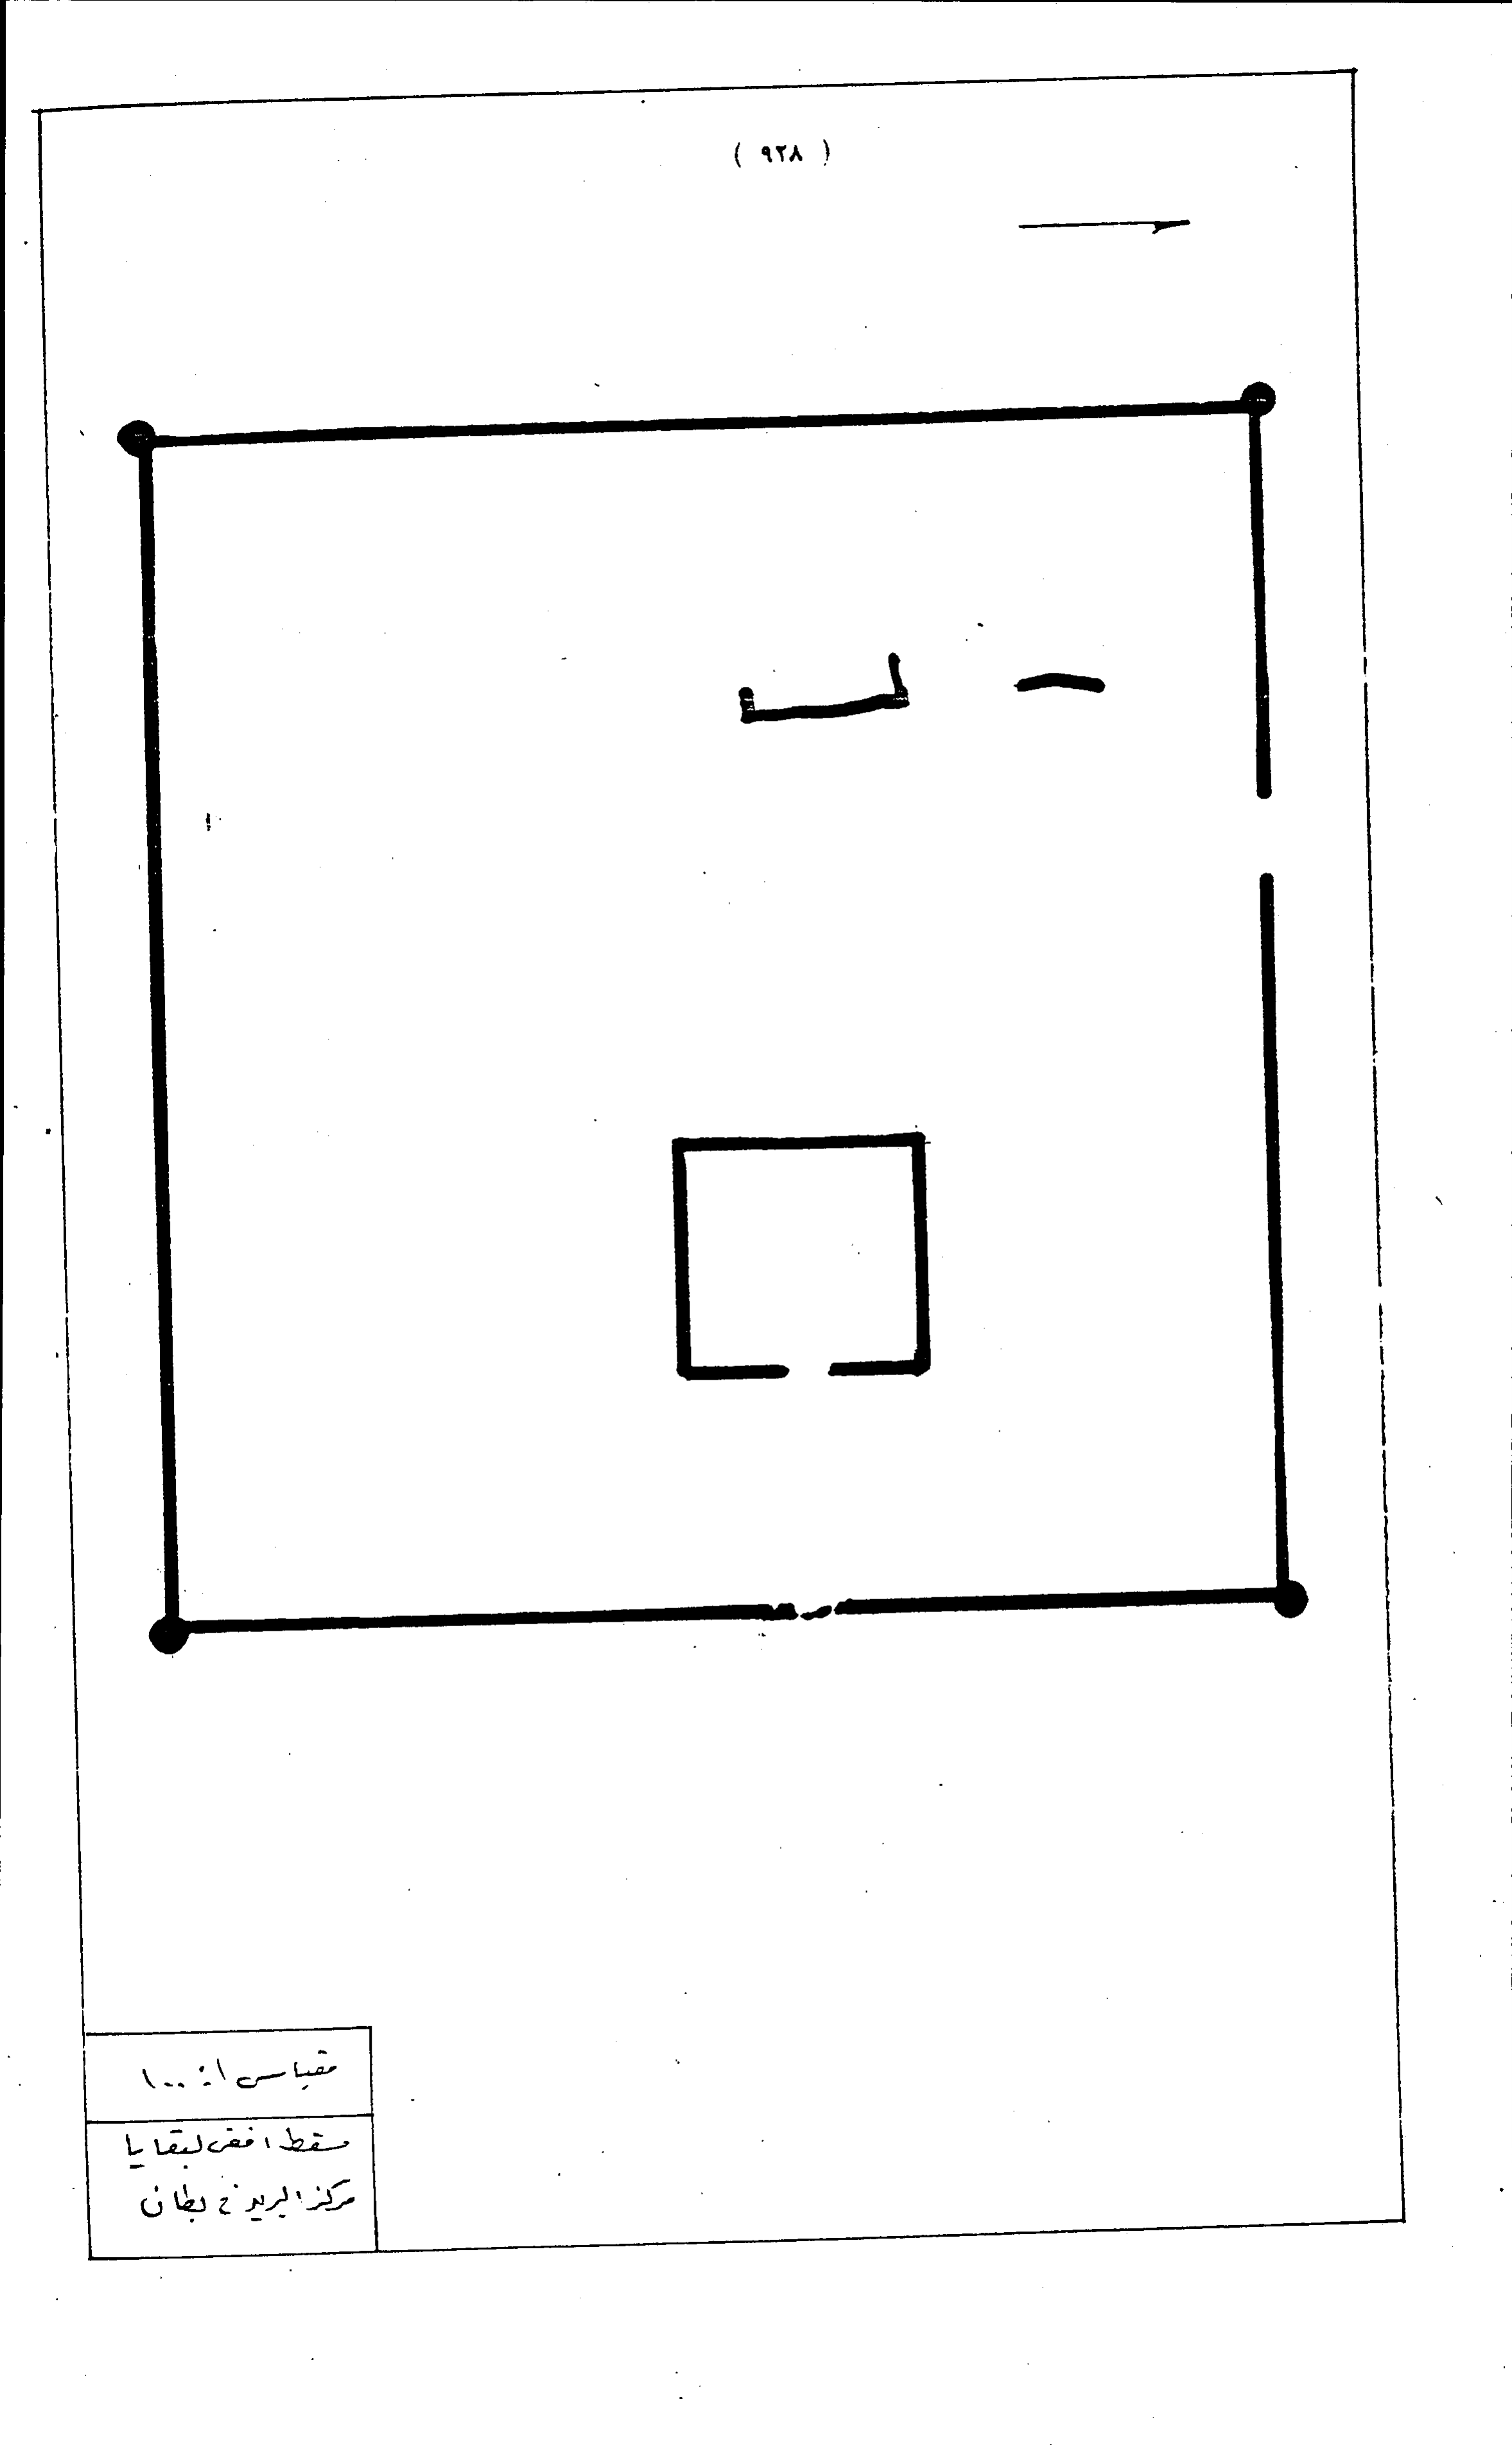 ( ٩٢٨ )
مقياس ١:١٠٠
مسقط افقى لبقايا
مركز البريد في بطان